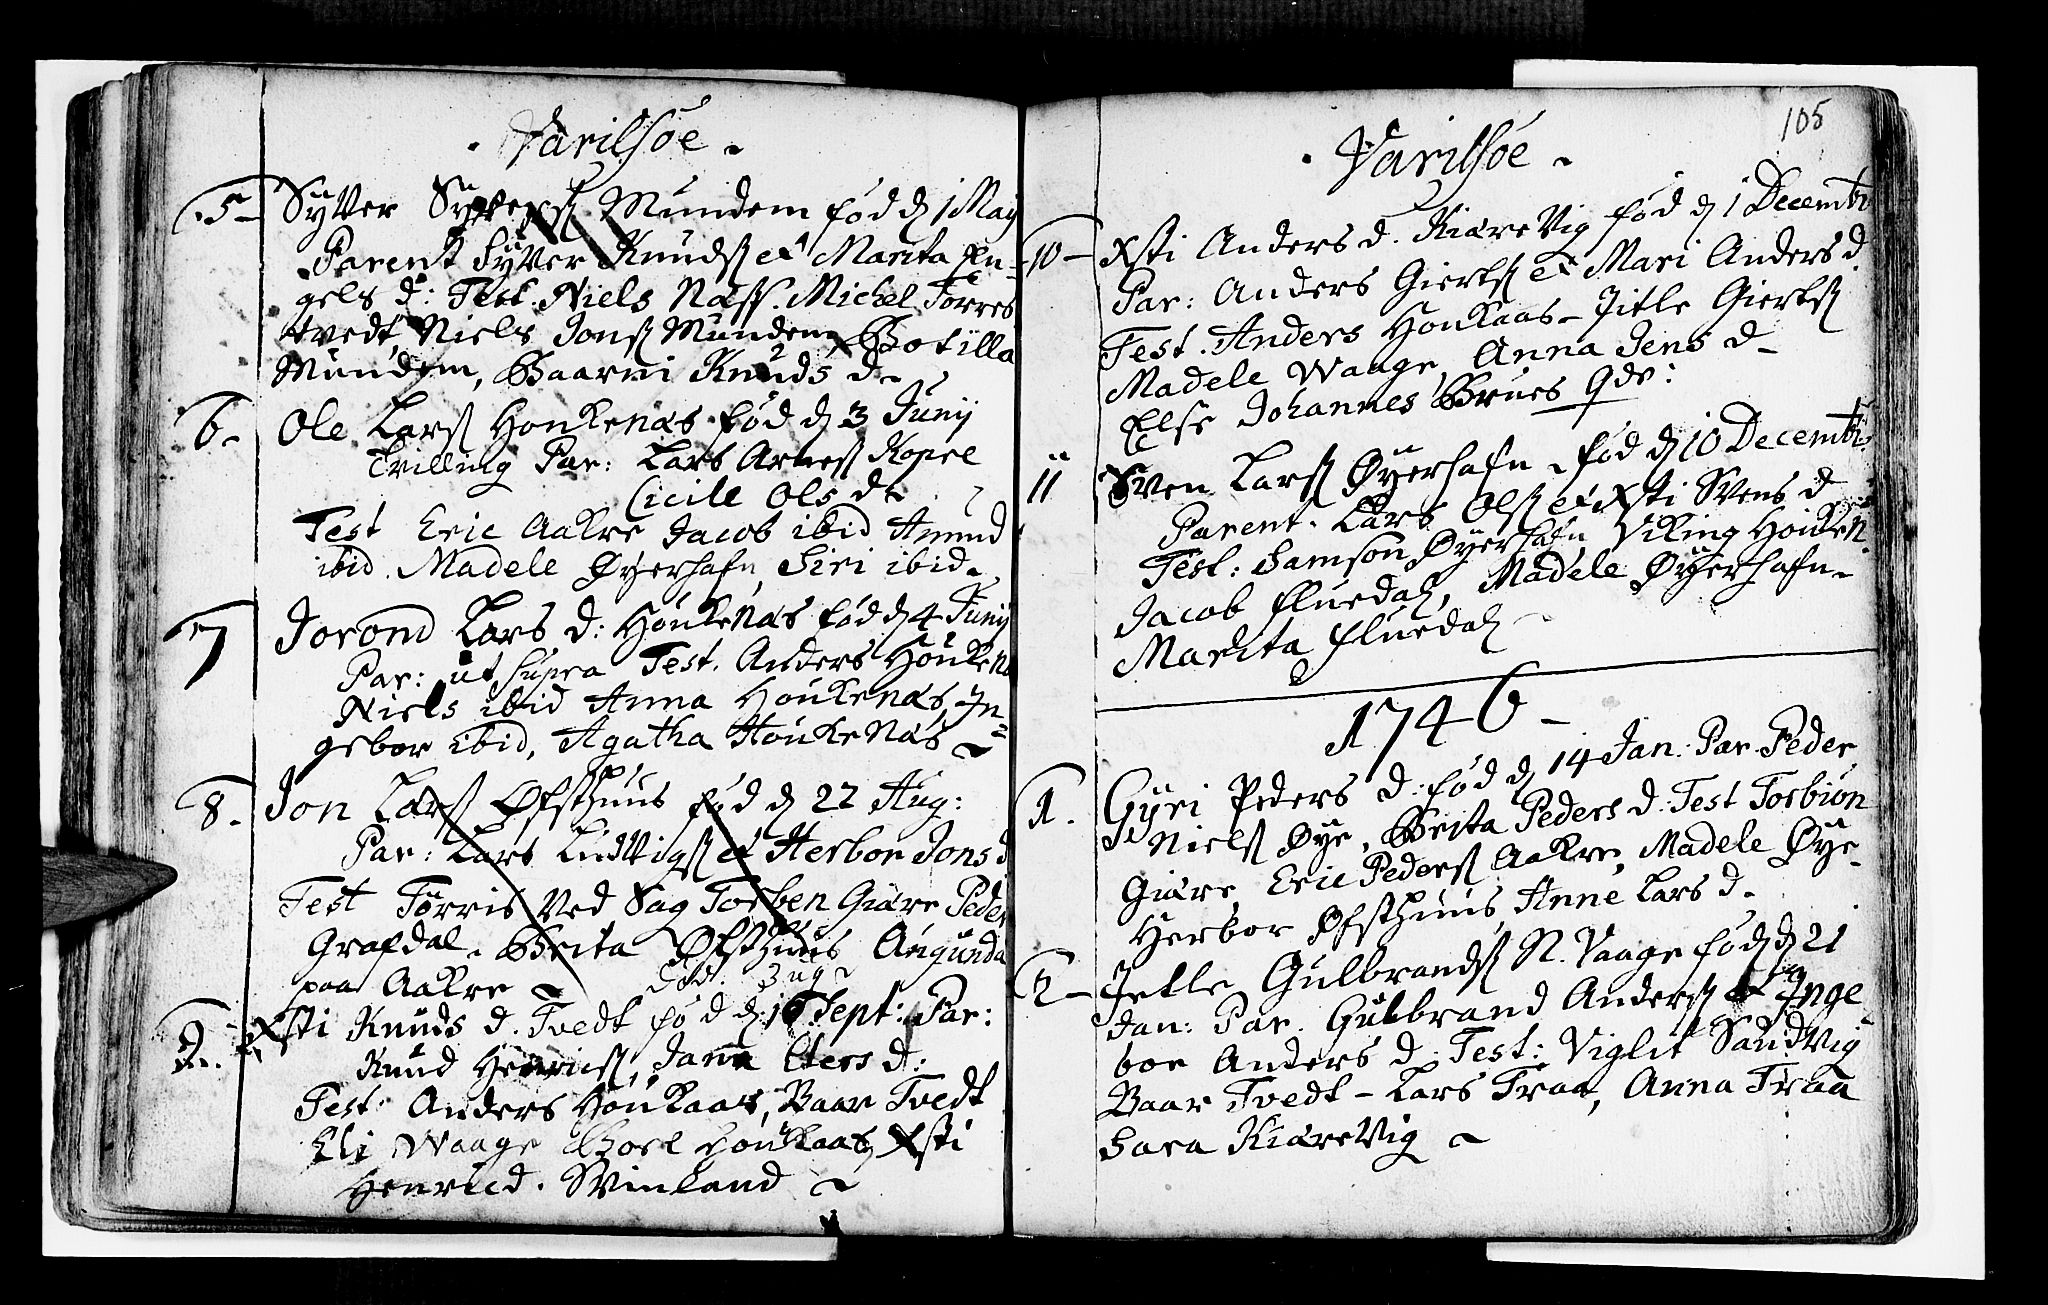 Varilsøe
5 Syver Syversß Mundem fød d 1 May
Parent Syver Knudsß et Marita En-
gels d: Test. Niels Næss. Michel Torres
tvedt, Niels Jonsß Mundem, Botilla
Mundem, Baarni Knuds d.
6. Ole Larsß Honkenæs fød d 3 Junij
Tvilling Par: Lars Arnesß Kopre
Cicile Ols d.
Test Eric Aakre Jacob ibid Amund
ibid. Madele Øyerhafn, Siri ibid.
7 Jorond Lars d: Honkenæs fød d 4 Junij
Par: ut supra Test. Anders Honken
Niels ibid Anna Honkenæs, In-
gebor ibid, Agatha Honkenæs
8. Jon Larsß Øfsthuus fød d 22 Aug:
Par: Lars Ludvigsß et Herbor Jons d
Test Tørris ved Sag Torben Giære Peder
Grafdal. Brita Øfsthuus Angunda
paa Aakre
9. Xsti Knuds d. Tvedt fød d: 1 Sept: Par:
Knud Henricsß, Janna Elers d:
Test: Anders Honkaas, Baar Tvedt
Eli Waage Boel Honkaas, Xsti
Henric d. Svinland
105
Varilsøe
10 Xsti Anders d. Kiærevig fød d 1 Decembr
Par: Anders Giertsß et Mari Anders d
Test. Anders Honkaas Jitle Giertsß
Madele Waage, Anna Jens d
Else Johannes Brues Qde:
11 Sven Larsß Øyerhafn fød d 10 Decembr
Parent. Lars Olsß et Xsti Svens d.
Test: Samson Øyerhafn Viking Honken.
Jacob Fluedal, Madele Øyerhafn
Marita Fluedal
1746
1. Gyri Peders d: fød d 14 Jan: Par. Peder
Nielsß Øye, Brita Peders d: Test Torbiøn
Giære, Eric Pedersß Aakre, Madele Øye
Herbor Øfsthuus, Anne Lars d.
2 Jetle Gulbrandsß N. Vaage fød d 21
Jan: Par. Gulbrand Andersß et Inge
bor Anders d. Test: Viglit Sandvig
Baar Tvedt Lars Traa, Anna Traa
Sara Kiærevig